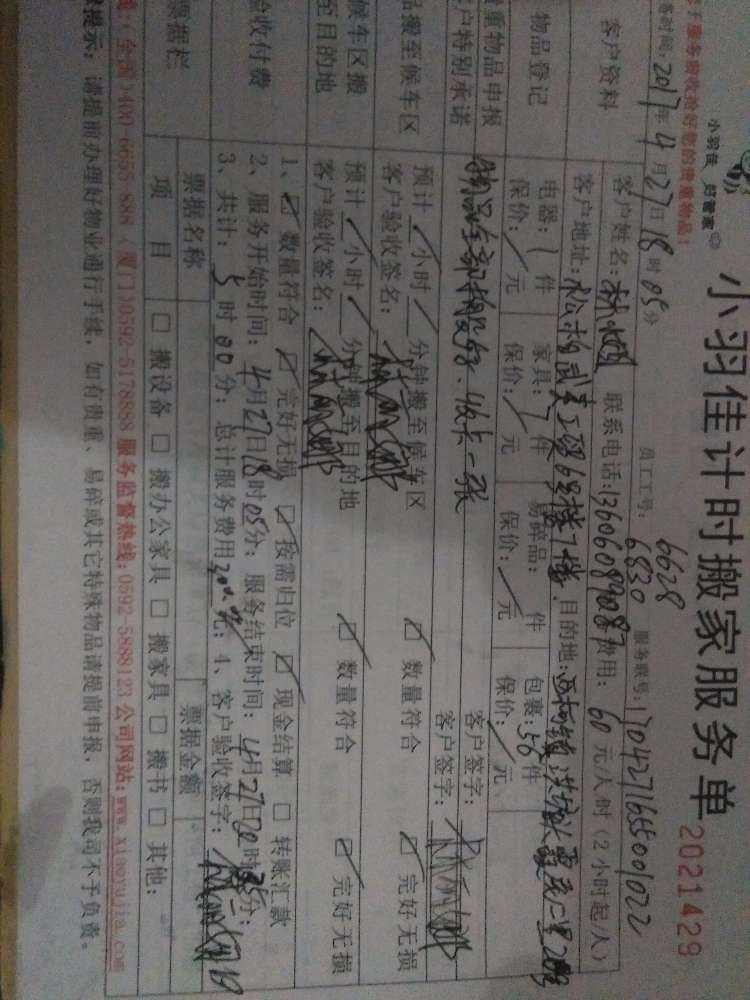 小羽佳 好管家
小羽佳计时搬家服务单 2021429
服务验收拾好您的贵重物品！
务时间：2017年4月27日18时05分 员工工号：6628 6830 服务联号：170427165501022
客户资料
客户姓名：林 联系电话：13606089087 费用：60元/人时（2小时起/人）
客户地址：目的地：
物品登记
电器：1件 家具：件 易碎品：件 包裹：56件
保价：/元 保价：/元 保价：/元 保价：/元
重物品申报
客户特别承诺
物品全部搬 一张 客户签字：
品搬至候车区
预计/小时/分钟搬至候车区 ☑数量符合 ☑完好无损
客户验收签名：
候车区搬至目的地
预计/小时/分钟搬至目的地 ☑数量符合 ☑完好无损
客户验收签名：
验收付费
1、☑数量符合 ☑完好无损 ☑按需归位 ☑现金结算 □转账汇款
2、服务开始时间：4月27日18时05分；服务结束时间：4月27日20时35分；
3、共计：5时00分；总计服务费用元；4、客户验收签字：
票据栏
票据名称 票据金额
项目 □搬设备 □搬办公家具 □搬家具 □搬书 □其他：
线：(全国)400-6695-888（厦门）0592-5178888 服务监督热线：0592-5888123 公司网站：www.xiaoyujia.com
提示：请提前办理好物业通行手续，如有贵重、易碎或其它特殊物品请提前申报，否则我司不予负责。